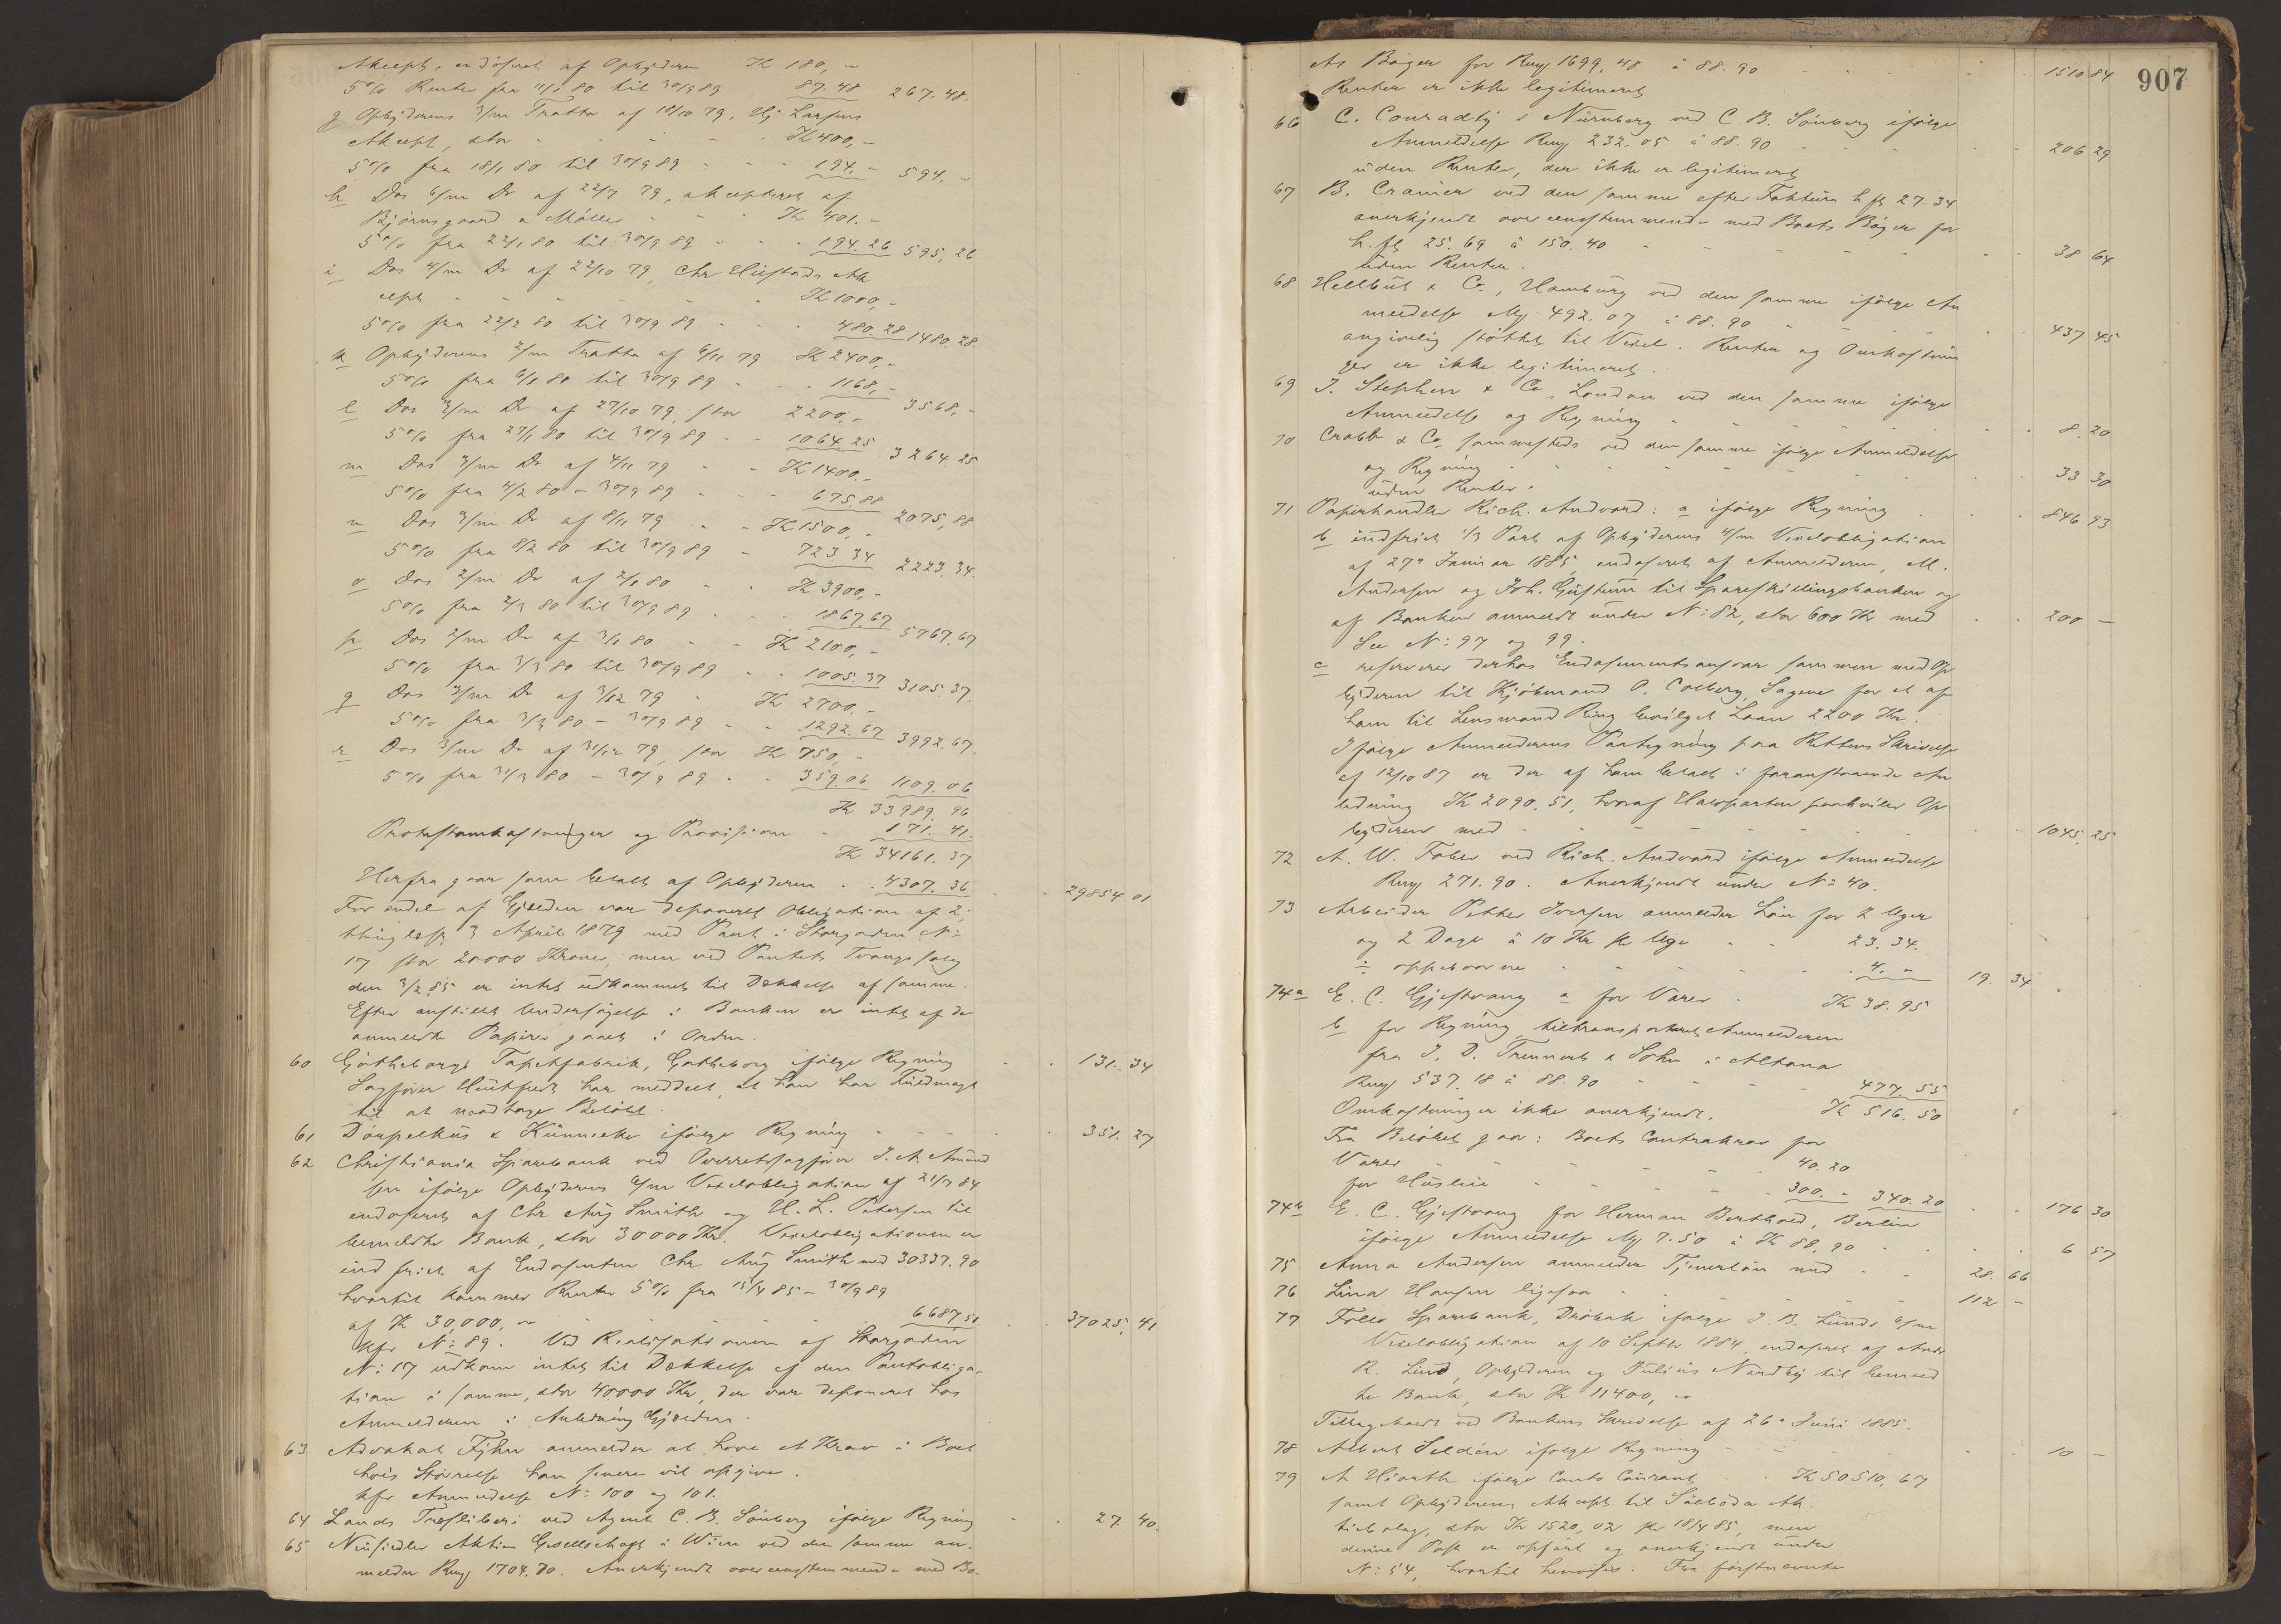 Akcept, endosseret af Opbyderen Kr 180, "
5% Renter fra 11/1 80 til 30/9 89 87.48 267.48.
g Opbyderens 3/m Tratta af 18/10 79, Hj Larsens
Akcept, stor Kr 400,-
5% fra 18/1 80 til 30/9 89 194.- 594.-
h Dos 6/m Do af 22/7 79, akcepteret af
Bjørnsgaard & Møller Kr 401.-
5% fra 22/1 80 til 30/9 89 194.26 595,26
i Dos 4/m Do af 22/10 79, Chr Hustads Ak
cept Kr 1000,-
5% fra 22/2 80 til 30/9 89 480.28 1480.28
k Opbyderens 2/m Tratta af 6/11 79 Kr 2400,-
5% fra 6/1 80 til 30/9 89 1168,- 3568,-
l Dos 3/m Do af 27/10 79, stor 2200,-
5% fra 27/1 80 til 30/9 89 1064.25 3264.25
m Dos 3/m Do af 4/11 79 Kr 1400,-
5% fra 4/2 80 - 30/9 89 675.88 2075,88
n Dos 3/m Do af 8/11 79 Kr 1500,-
5% fra 8/2 80 til 30/9 89 723.34 2223.34.
o Dos 2/m Do af 2/1 80 Kr 3900,-
5% fra 2/3 80 til 30/9 89 1867,67 5767.67
p Dos 2/m Do af 3/1 80 Kr 2100,-
5% fra 3/3 80 til 30/9 89 1005.37 3105.37.
q Dos 3/m Do af 3/12 79 Kr 2700.-
5% fra 3/3 80 - 30/9 89 1292.67 3992.67.
r Dos 3/m Do af 31/12 79, stor Kr 750,-
5% fra 31/3 80 - 30/9 89 359.06 1109.06
Kr 33989.96
Protestomkostninger og Provision 171.41.
Kr 34161.37
Herfra gaar som betalt af Opbyderen 4307.36 29854 01
For endel af Gjælden var deponeret Obligation af 2.
thinglæst 3 April 1879 med Pant i Storgaden No
17 stor 20000 Kroner, men ved Pantets Tvangssalg
den 3/2 85 er intet udkommet til Dækkelse af samme.
Efter anstillet Undersøgelse i Banken er intet af de
anmeldte Papirer gaaet i Orden.
60 Gøtheborgs Tapetfabrik, Gøtheborg ifølge Regning 131. 34
Sagfører Huitfeldt har meddelt, at han har Fuldmagt
til at modtage Beløbet.
61 Dörpelkus & Künnecke ifølge Regning 351. 27
62 Christiania Sparebank ved Overretssagfører J. A. Amund
sen ifølge Opbyderens 6/m Vexelobligation af 21/7 84
endosseret af Chr Aug Smith og H. L. Petersen til
bemeldte Bank, stor 30000 Kr. Vexelobligationen er
indfriet af Endossenten Chr Aug Smith med 30337.90
hvortil kommer Renter 5% fra 15/4 85 - 30/9 89
af Kr 30,000, " 6687,51. 37025, 41
kfr No 89. Ved Realisationen af Storgaden
No 17 udkom intet til Dækkelse af den Pantobliga-
tion i samme, stor 40000 Kr, der var deponeret hos
Anmelderen i Anledning Gjælden.
63 Advokat Fjhn anmelder at have et Krav i Boet
hvis Størrelse han senere vil opgive.
kfr Anmeldelse No 100 og 101.
64 Lands Træsliberi ved Agent C. B. Sönberg ifølge Regning 27. 40.
65 Neusiedler Aktien Gesellschaft i Wien ved den samme an-
melder Rmg 1704.70. Anerkjendt overensstemmende med Bo-
907
ets Bøger for Rmg 1699,48 à 88.90 1510 84
Renter er ikke legitimeret
66 C. Conradty i Nürnberg ved C. B. Sönberg ifølge
Anmeldelse Rmg 232.05 à 88.90 206 29
uden Renter, der ikke er legitimeret
67 B. Cramer ved den samme efter Faktura h fl 27.34
anerkjendt overensstemmende med Boets Bøger for
h. fl 25.69 à 150.40 38 64
uden Renter.
68 Hellbut & Co, Hamburg ved den samme ifølge An
meldelse Mg 492.07 à 88.90 437 45
angivelig støttet til Vexel. Renter og Omkostnin
ger er ikke legitimeret.
69 J. Stephen & Co, London ved den samme ifølge
Anmeldelse og Regning 8. 20
70 Crabb & Co, sammesteds ved den samme ifølge Anmeldelse
og Regning 33 30
uden Renter.
71 Papirhandler Rich. Andvord: a ifølge Regning 846 93
b indfriet 1/3 Part af Opbyderens 4/m Vexelobligation
af 27de Januar 1885, endosseret af Anmelderen, M.
Andersen og Joh. Gustum til Spareskillingsbanken og
af Banken anmeldt under No 82, stor 600 Kr med 200 -
See No 97 og 99.
c reserverer derhos Endosementsansvar sammen med Op
byderen til Kjøbmand O. Colberg, Sagene for et af
ham til Lensmand Ring bevilget Laan 2200 Kr.
Ifølge Anmelderens Paategning paa Rettens Skrivelse
af 12/10 87 er der af ham betalt i foranstaaende An
ledning Kr 2090.51, hvoraf Halvparten paahviler Op
byderen med 1045, 25
72 A. W. Faber ved Rich. Andvord ifølge Anmeldelse
Rmg 271.90. Anerkjendt under No 40.
73 Arbeider Petter Iversen anmelder Løn for 2 Uger
og 2 Dage à 10 Kr pr Uge 23.34.
÷ oppebaarne 4. - 19. 34
74a E. C. Gjestvang a for Varer Kr 38.95
b for Regning tiltransporteret Anmelderen
fra J. D. Trennert & Sohn i Altona
Rmg 537.18 à 88.90 477.55
Omkostninger ikke anerkjendt. Kr 516.50
Fra Beløbet gaar: Boets Contrakrav for
Varer 40.20
for Husleie 300. - 340.20 176 30
74b E. C. Gjestvang for Herman Berthold, Berlin
ifølge Anmeldelse Mg 7.50 à Kr 88.90 6 57
75 Anna Andersen anmelder Tjenerløn med 28. 66
76 Lina Hansen ligesaa 112 -
77 Follo Sparebank, Drøbak ifølge J. B. Lunds 6/m
Vexelobligation af 10 Septbr 1884, endosseret af Andr
R. Lind, Opbyderen og Julius Nordby til bemeld
te Bank, stor Kr 11400, "
Tilbagekaldt ved Bankens Skrivelse af 26de Juni 1885.
78 Albert Seldén ifølge Regning 10 -
79 A Hiorth ifølge Conto Courant Kr 50510,67
samt Opbyderens Akcept til Sälboda Ak.
tiebolag, stor Kr 1520,02 pr 18/4 85, men
denne Post er opført og anerkjendt under
No 54, hvortil henvises. Fra førstnævnte